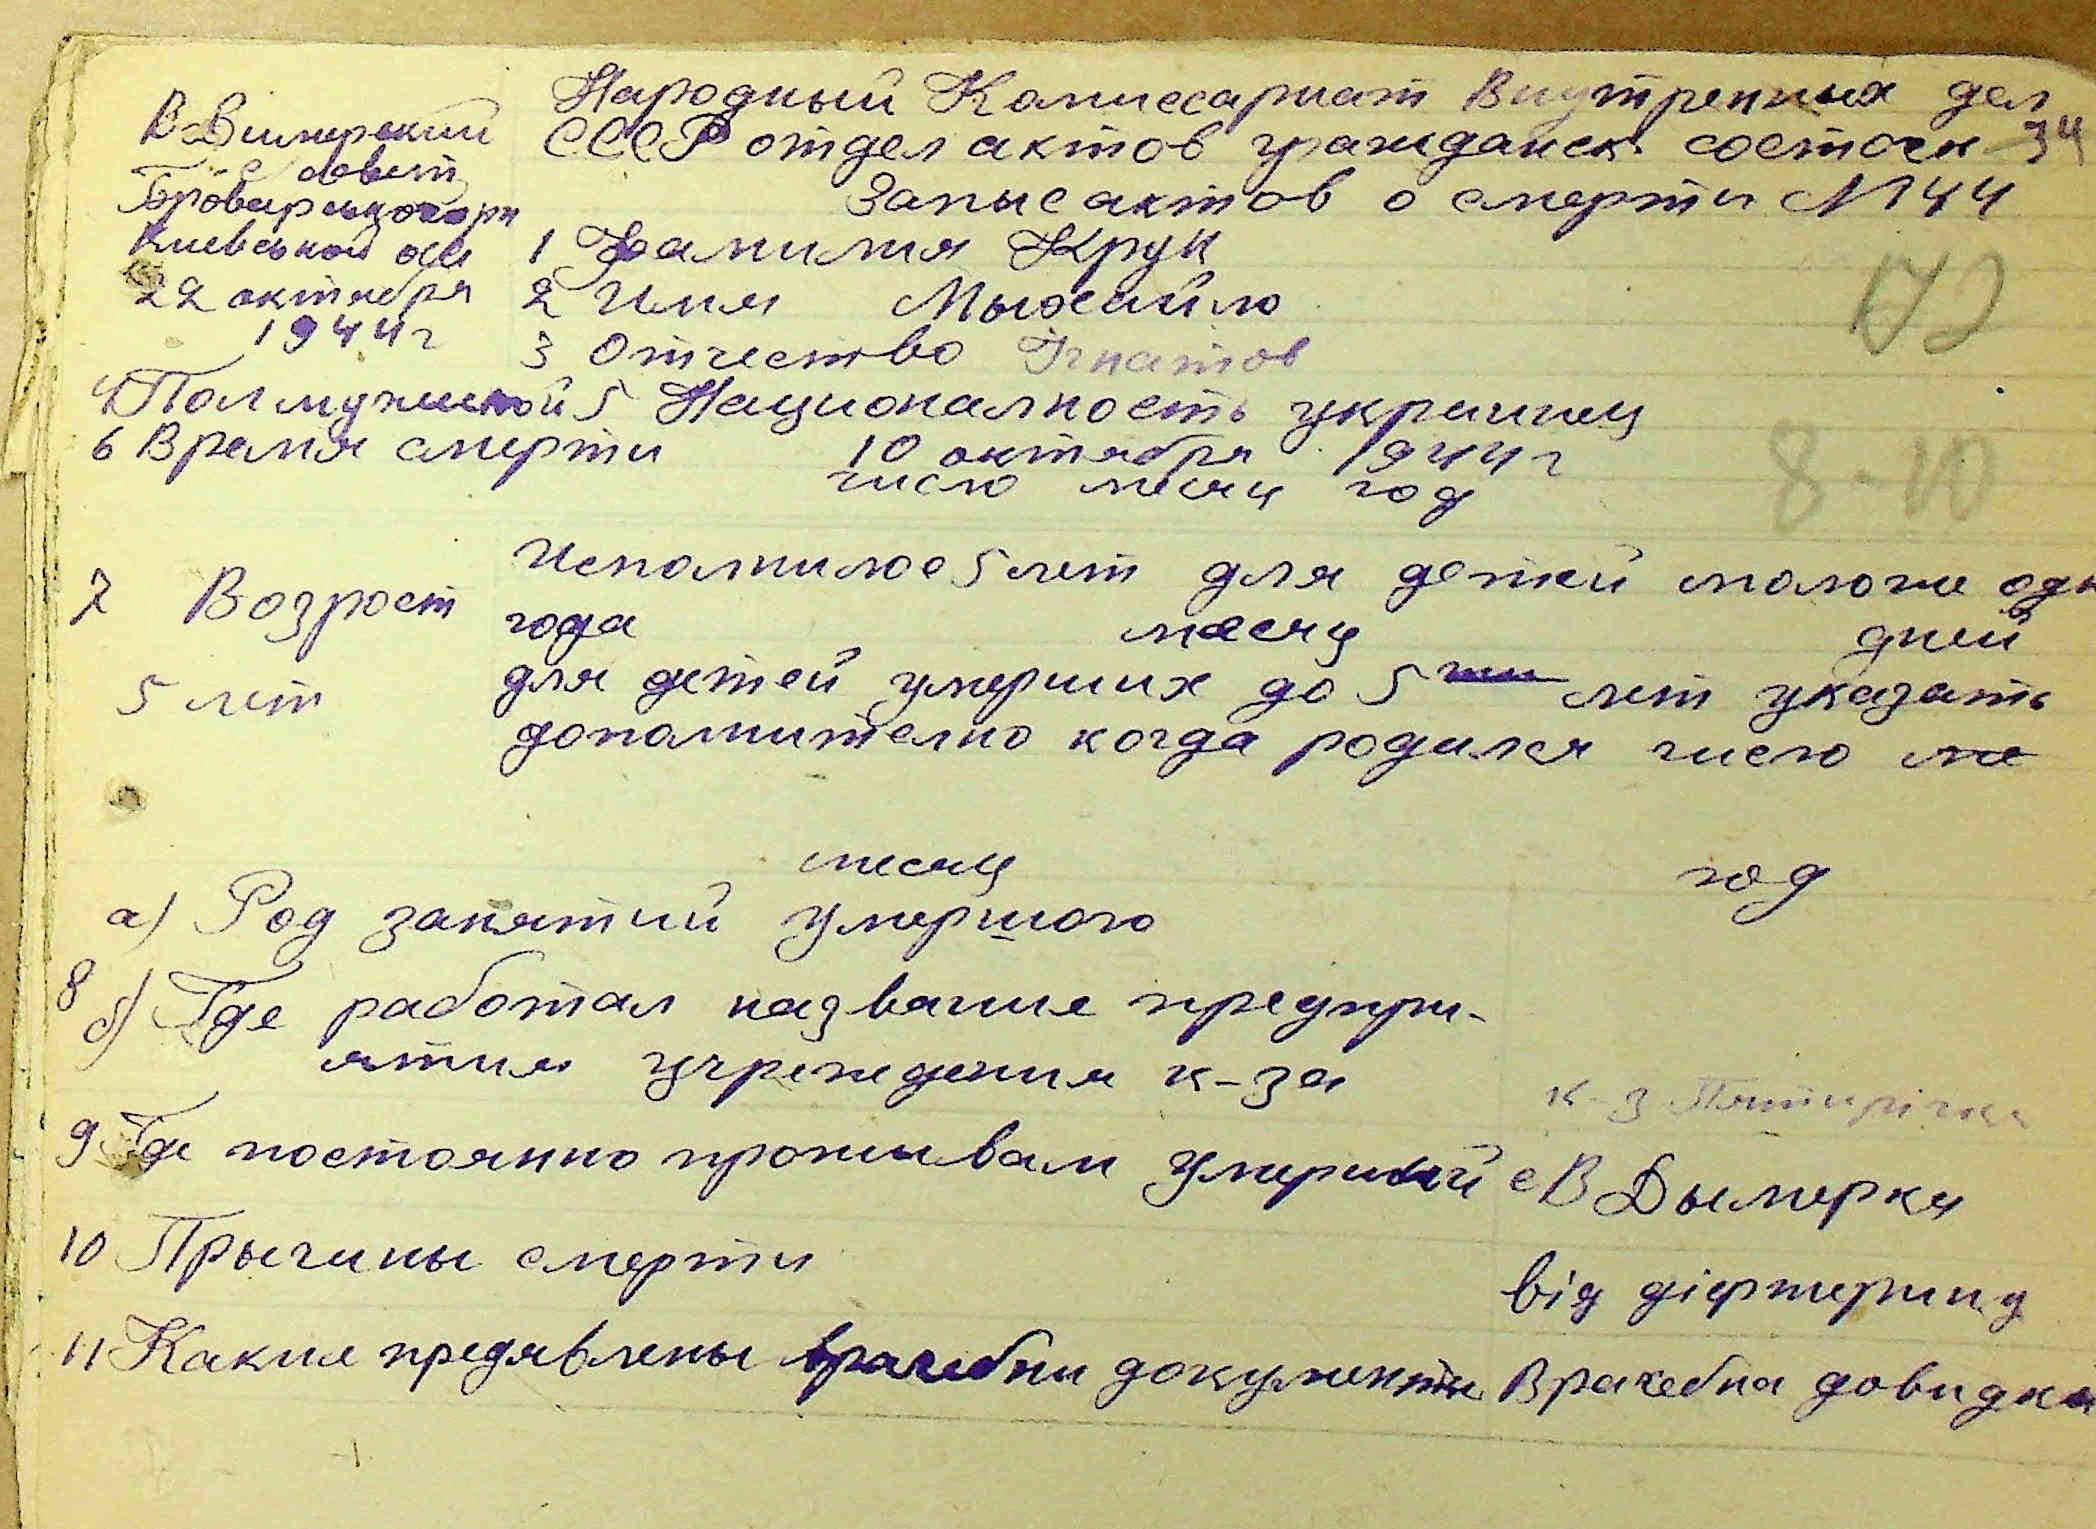 Народный Комиссариат Внутренных дел
СССР отдел актов гражданск. состоян 34
Запыс актов о смерти N 44
В-Димерский
с совет
Броварського рн
Киевськой обл
22 октября
1944 г
1 Фамилия Крук
2 Имя Мыхайло
3 Отчество Ігнатов
4 Пол мужской 5 Националность украинец
6 Время смерти 10 октября 1944 г
число месяц год
72
8-10
7 Возрост Исполнилос 5 лет для детей моложе одн
года месяц дней
5 лет для детей умерших до 5 ти лет указать
дополнително когда родился число ме
месяц год
а) Род занятий умершого
8 б) Где работал название предпри-
ятия учреждения к-за к-з Пятирічка
9 Где постоянно проживал умерший с В Дымерка
10 Прычины смерти від діфтерии
11 Какие предявлены врачебни документы Врачебна довидка